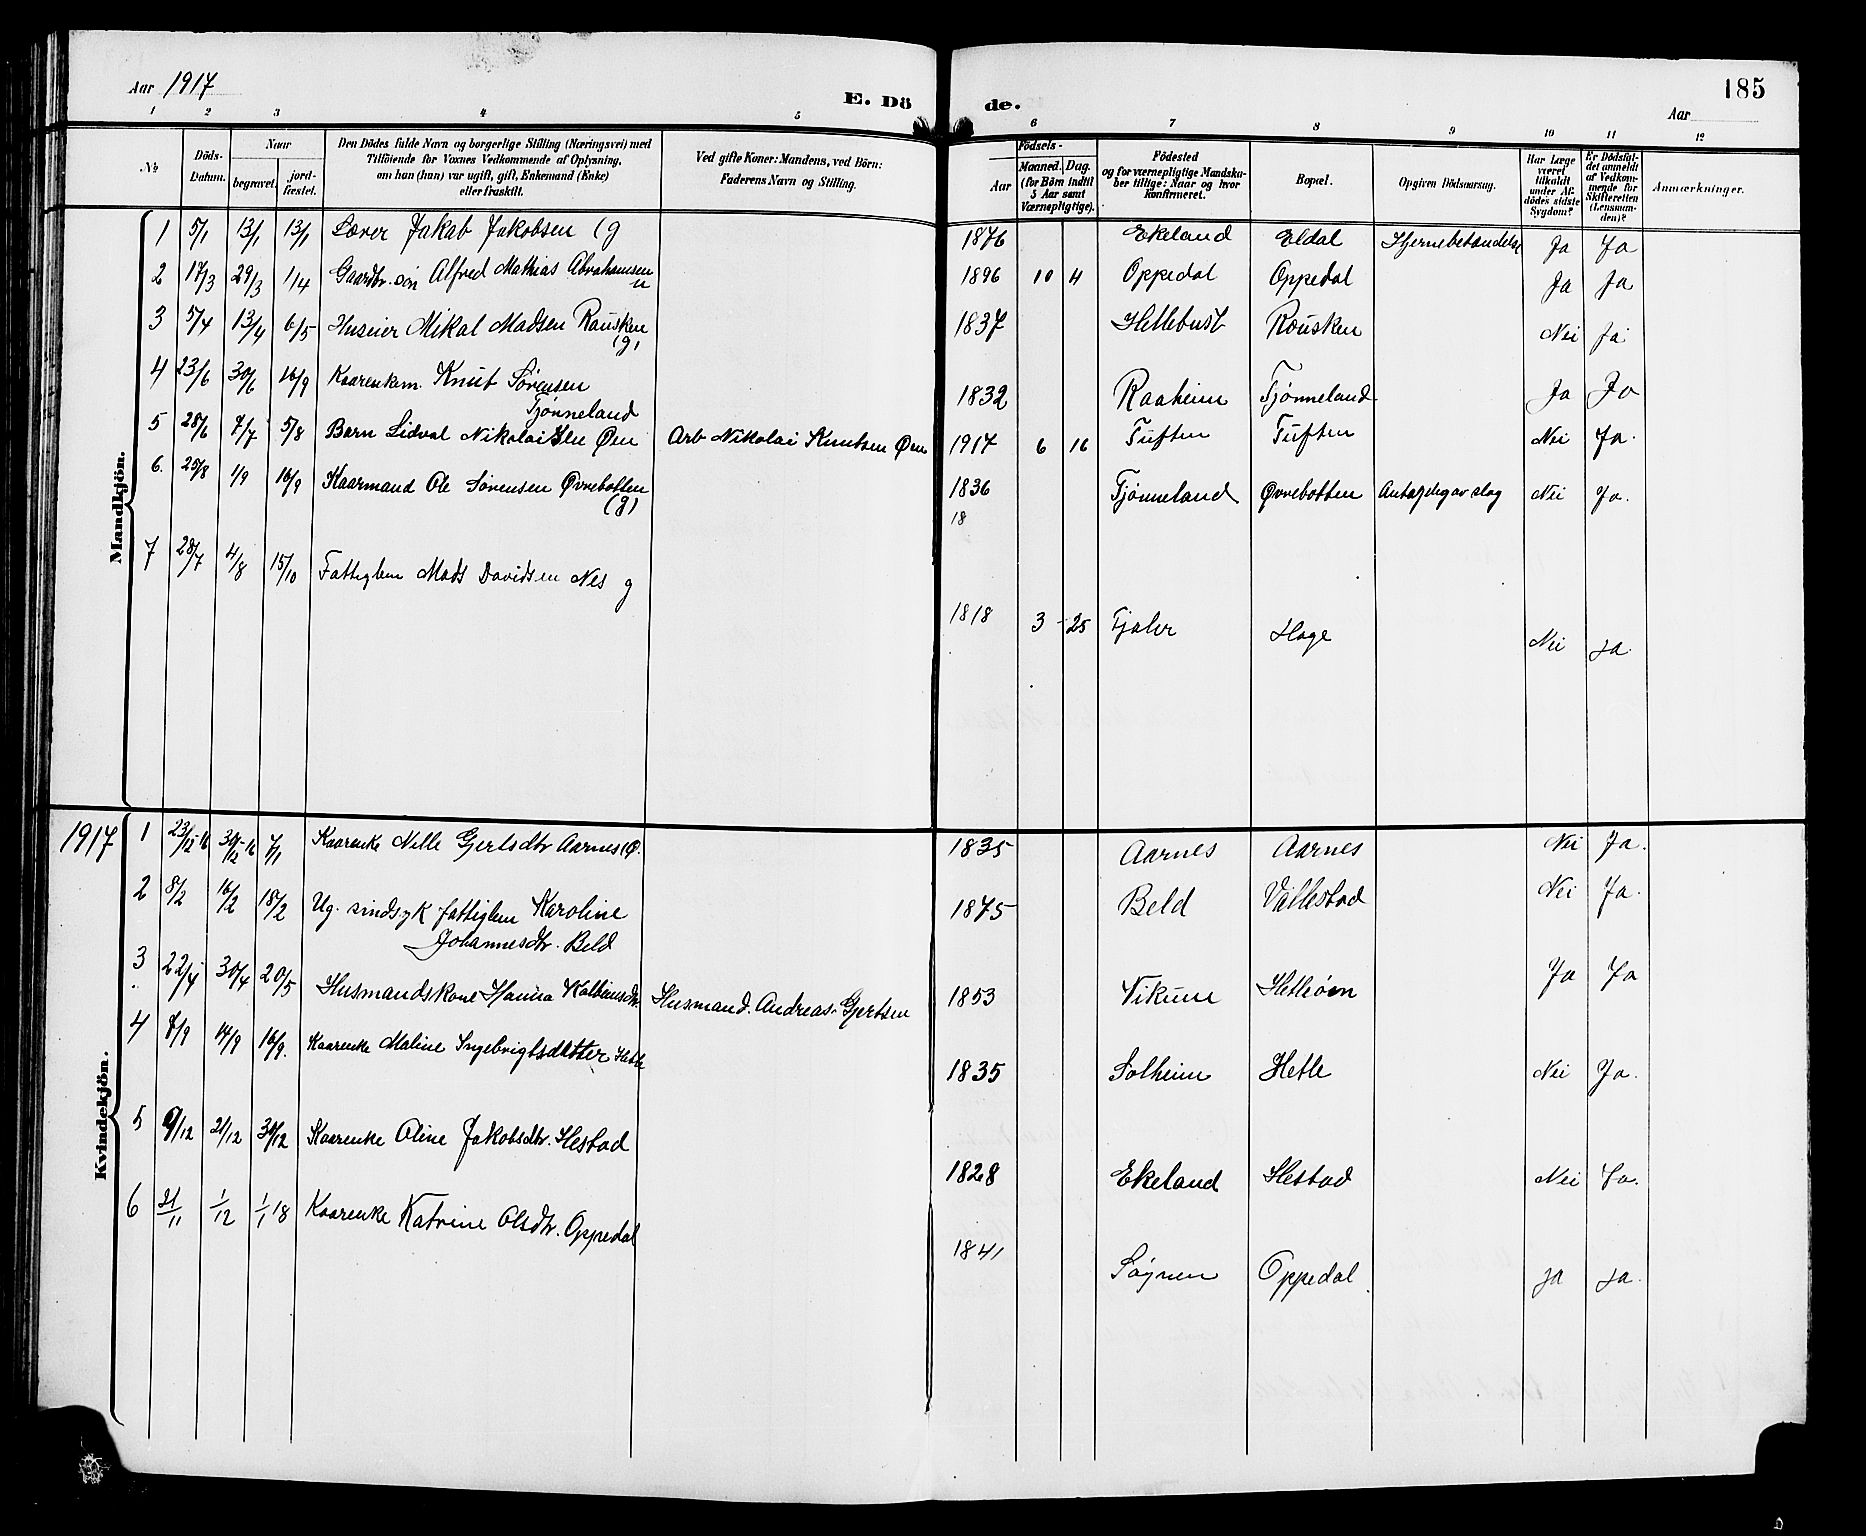 Aar 1917
E. Dö de.
185
Aar
1 2 3 4 5 6 7 8 9 10 11 12
No
Döds-Datum.
Naar
begravet.
jord-fæstet.
Den Dödes fulde Navn og borgerlige Stilling (Næringsvei) med
Tilföiende for Voxnes Vedkommende af Oplysning,
om han (hun) var ugift, gift, Enkemand (Enke)
eller fraskilt.
Ved gifte Koner: Mandens, ved Börn:
Faderens Navn og Stilling.
Födsels-
Aar
Maaned. Dag.
(for Börn indtil
5 Aar samt
Værnepligtige).
Födested
og for værnepligtige Mandska-
ber tillige: Naar og hvor
konfirmeret.
Bopæl.
Opgiven Dödsaarsag.
Har Læge
været
tilkaldt
under Af-
dödes sidste
Sygdom?
Er Dödsfal-
det anmeldt
af Vedkom-
mende for
Skifteretten
(Lensman-
den)?
Anmærkninger.
Mandkjön.
1 5/1 13/1 13/1 Lærer Jakob Jakobsen (g 1876 Ekeland Eldal Hjernebetændelse Ja Ja
2 17/3 29/3 1/4 Gaardbr. søn Alfred Mathias Abrahamsen u 1896 10 4 Oppedal Oppedal Ja Ja
3 5/4 13/4 6/5 Huseier Mikal Madsen Rausken (g) 1837 Hellebust Rousken Nei Ja
4 23/6 30/6 16/9 Kaarenkem. Knut Sørensen
Tjønneland 1832 Raaheim Tjønneland Ja Ja
5 28/6 7/7 5/8 Barn Sidval Nikolaisen Øen Arb Nikolai Knutsen Øen 1917 6 16 Tuften Tuften Nei Ja.
6. 25/8 1/9 16/9 Kaarmand Ole Sørensen Øvrebotten (g) 1836 Tjønneland Øvrebotten Antagelig av slag Nei Ja.
18
7 28/7 4/8 15/10 Fattiglem Mads Davidsen Nes g 1818 3 - 25 Fjaler Hage Nei Ja.
Kvindekjön.
1917
1 23/12-16 30/12-16 7/1 Kaarenke Nille Gjertsdtr Aarnes Ø. 1835 Aarnes Aarnes Nei Ja.
2 8/2 16/2 18/2 Ug. sindsyk fattiglem Karoline
Johannesdtr. Beld 1875 Beld Vallestad Nei Ja.
3 22/4 30/4 20/5 Husmandskone Hanna Kolbeinsdtr. Husmand. Andreas Gjertsen 1853 Vikum Ja Ja
4 7/9 14/9 16/9. Kaarenke Maline Ingebrigtsdatter Hetle 1835 Solheim Hetle Nei Ja.
5 9/12 21/12 30/12 Kaarenke Oline Jakobsdtr. Hestad 1828 Ekeland Hestad Nei Ja.
6 21/11 1/12 1/1 18 Kaarenke Katrine Olsdtr. Oppedal 1841 Søgnen Oppedal. Ja Ja.